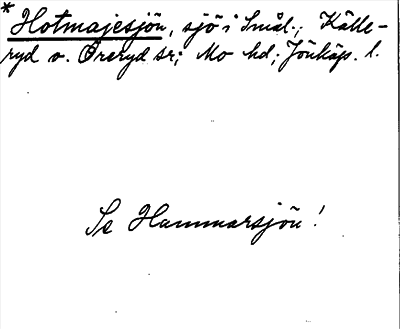 * Hotmajesjön, sjö i Smål.; Källe-
ryd o. Öreryd sr; Mo hd; Jönköps. l.
Se Hammarsjön!